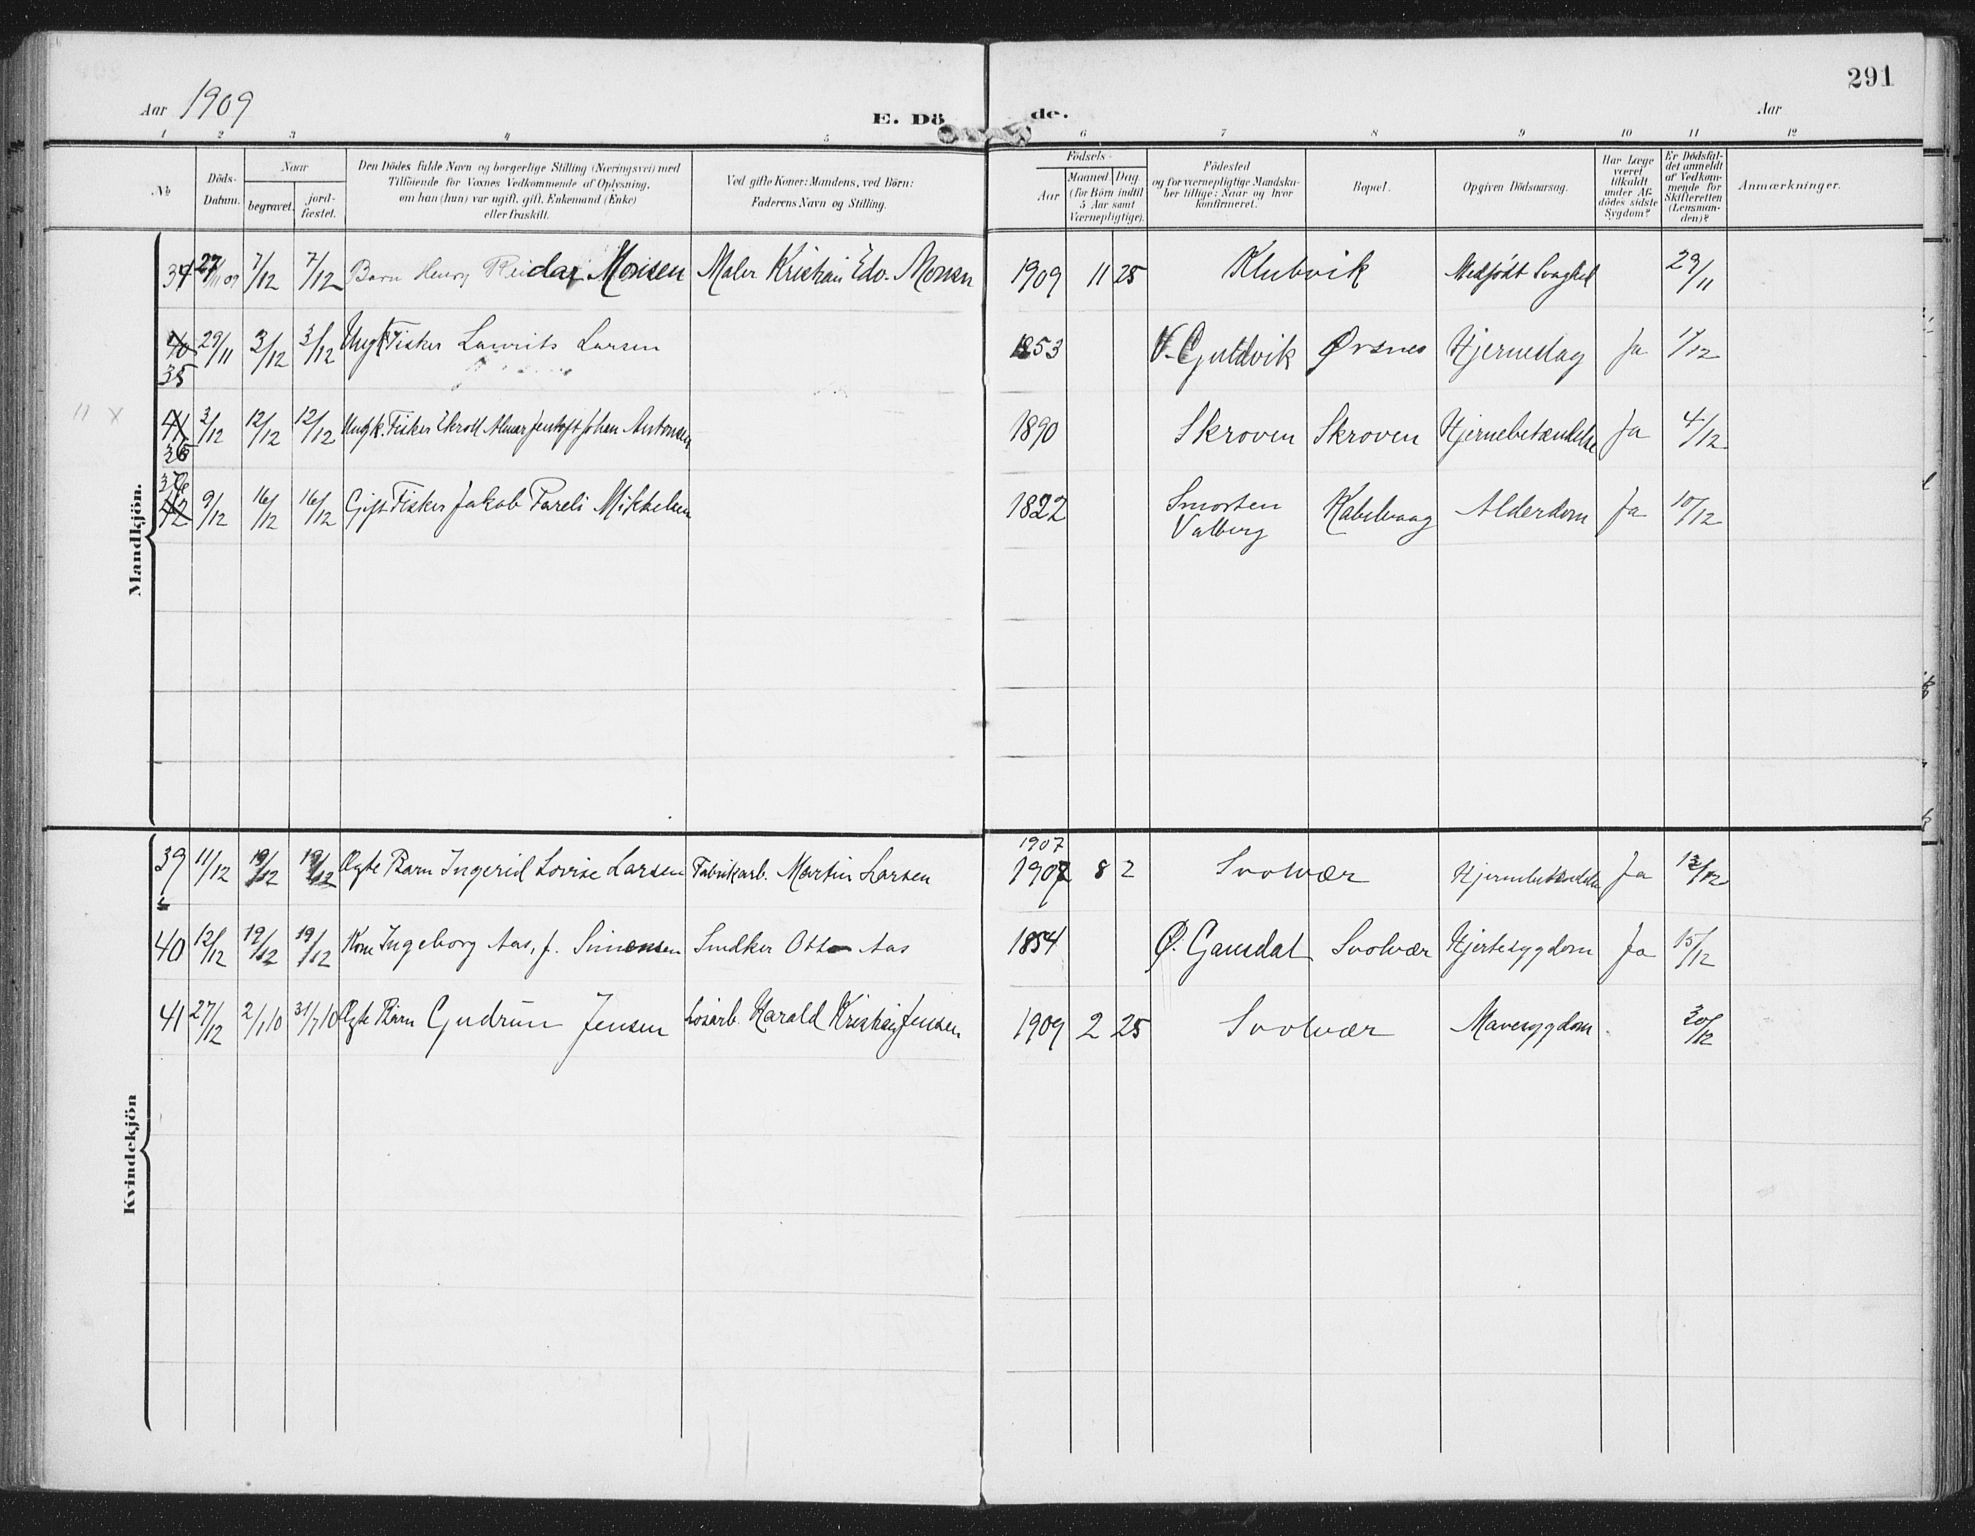 Aar 1909
E. Dö de.
Aar
291
1 2 3 4 5 6 7 8 9 10 11 12
No
Döds-Datum.
Naar
begravet.
jord-fæstet.
Den Dödes fulde Navn og borgerlige Stilling (Næringsvei) med
Tilföiende for Voxnes Vedkommende af Oplysning,
om han (hun) var ugift, gift, Enkemand (Enke)
eller fraskilt.
Ved gifte Koner: Mandens, ved Börn:
Faderens Navn og Stilling.
Födsels-
Aar
Maaned Dag
(for Börn indtil
5 Aar samt
Værnepligtige).
Födested
og for værnepligtige Mandska-
ber tillige: Naar og hvor
konfirmeret.
Bopæl.
Opgiven Dödsaarsag.
Har Læge
været
tilkaldt
under Af-
dödes sidste
Sygdom?
Er Dödsfal-
det anmeldt
af Vedkom-
mende for
Skifteretten
(Lensman-
den)?
Anmærkninger.
Mandkjön.
34 27/11 09 7/12 7/12 Barn Henry Reidar Monsen Maler Kristian Edv. Monsen 1909 11 25 Klubvik Medfödt Svaghed 29/11
40 35 29/11 3/12 3/12 Ungk. Fisker Laurits Larsen 1853 Ørsnes Hjerneslag Ja 1/12
41 36 3/12 12/12 12/12 Ungk. Fisker Johan Antonsen 1890 Skroven Skroven Hjernebetændelse Ja 4/12
42 9/12 16/12 16/12 Gift Fisker Jakob Pareli Mikkelsen 1822 Smorten Valberg Kabelvaag Alderdom Ja 10/12
Kvindekjön
1907
39 11/12 19/12 19/12 Ægte Barn Ingerid Lovise Larsen Fabrikarb. Martin Larsen 1907 8 2 Svolvær Hjernebetændelse Ja 13/12
40 12/12 19/12 19/12 Kone Ingeborg Aas, f. Simonsen Snedker Otto Aas 1854 Ø. Gausdal Svolvær Hjertesygdom Ja 15/12
41 27/12 2/1 10 31/7 10 Ægte Barn Gudrun Jensen Løsarb. Harald Kristian Jensen 1909 2 25 Svolvær Mavesygdom. 30/12